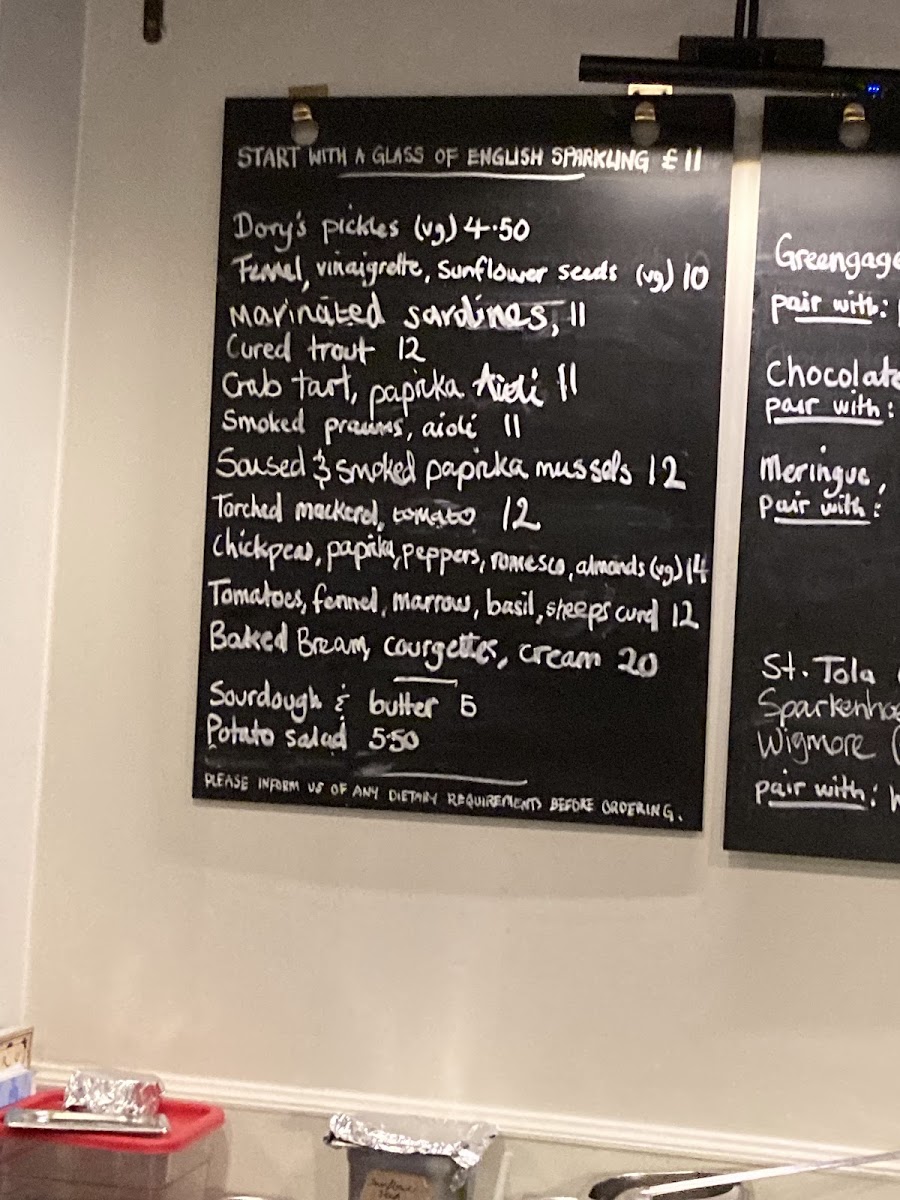 START WITH A GLASS OF ENGLISH SPARKLING £11
Dory's pickles (vg) 4.50
Fennel, vinaigrette, sunflower seeds (vg) 10
Marinated sardines, 11
Cured trout 12
Crab tart, paprika Aioli 11
Smoked prawns, aioli 11
Soused & smoked paprika mussels 12
Torched mackerel, tomato 12
Chickpeas, paprika, peppers, romesco, almonds (vg) 14
Tomatoes, fennel, marrow, basil, sheeps curd 12
Baked Bream, courgettes, cream 20
Sourdough & butter 5
Potato salad 5.50
PLEASE INFORM US OF ANY DIETARY REQUIREMENTS BEFORE ORDERING.
Greengage
pair with:
Chocolate
pair with:
Meringue,
pair with:
St. Tola
Sparkenho
Wigmore (
pair with: